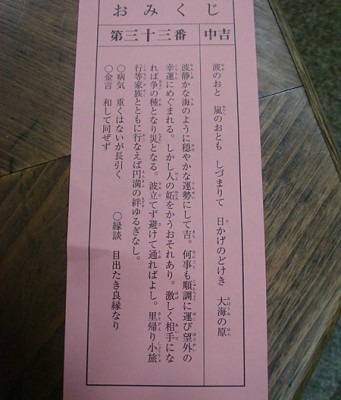 おみくじ
第三十三番
中吉
波のおと 嵐のおとも しづまりて 日かげのどけき 大海の原
波静かな海のように穏やかな運勢にして吉。何事も順調に運び望外の
幸運にめぐまれる。しかし人の妬をかうおそれあり。激しく相手にな
れば争の種となり災となる。波立てず避けて通ればよし。里帰り小旅
行等家族とともに行なえば円満の絆ゆるぎなし。
○病気 重くはないが長引く ○縁談 目出たき良縁なり
○金言 和して同ぜず